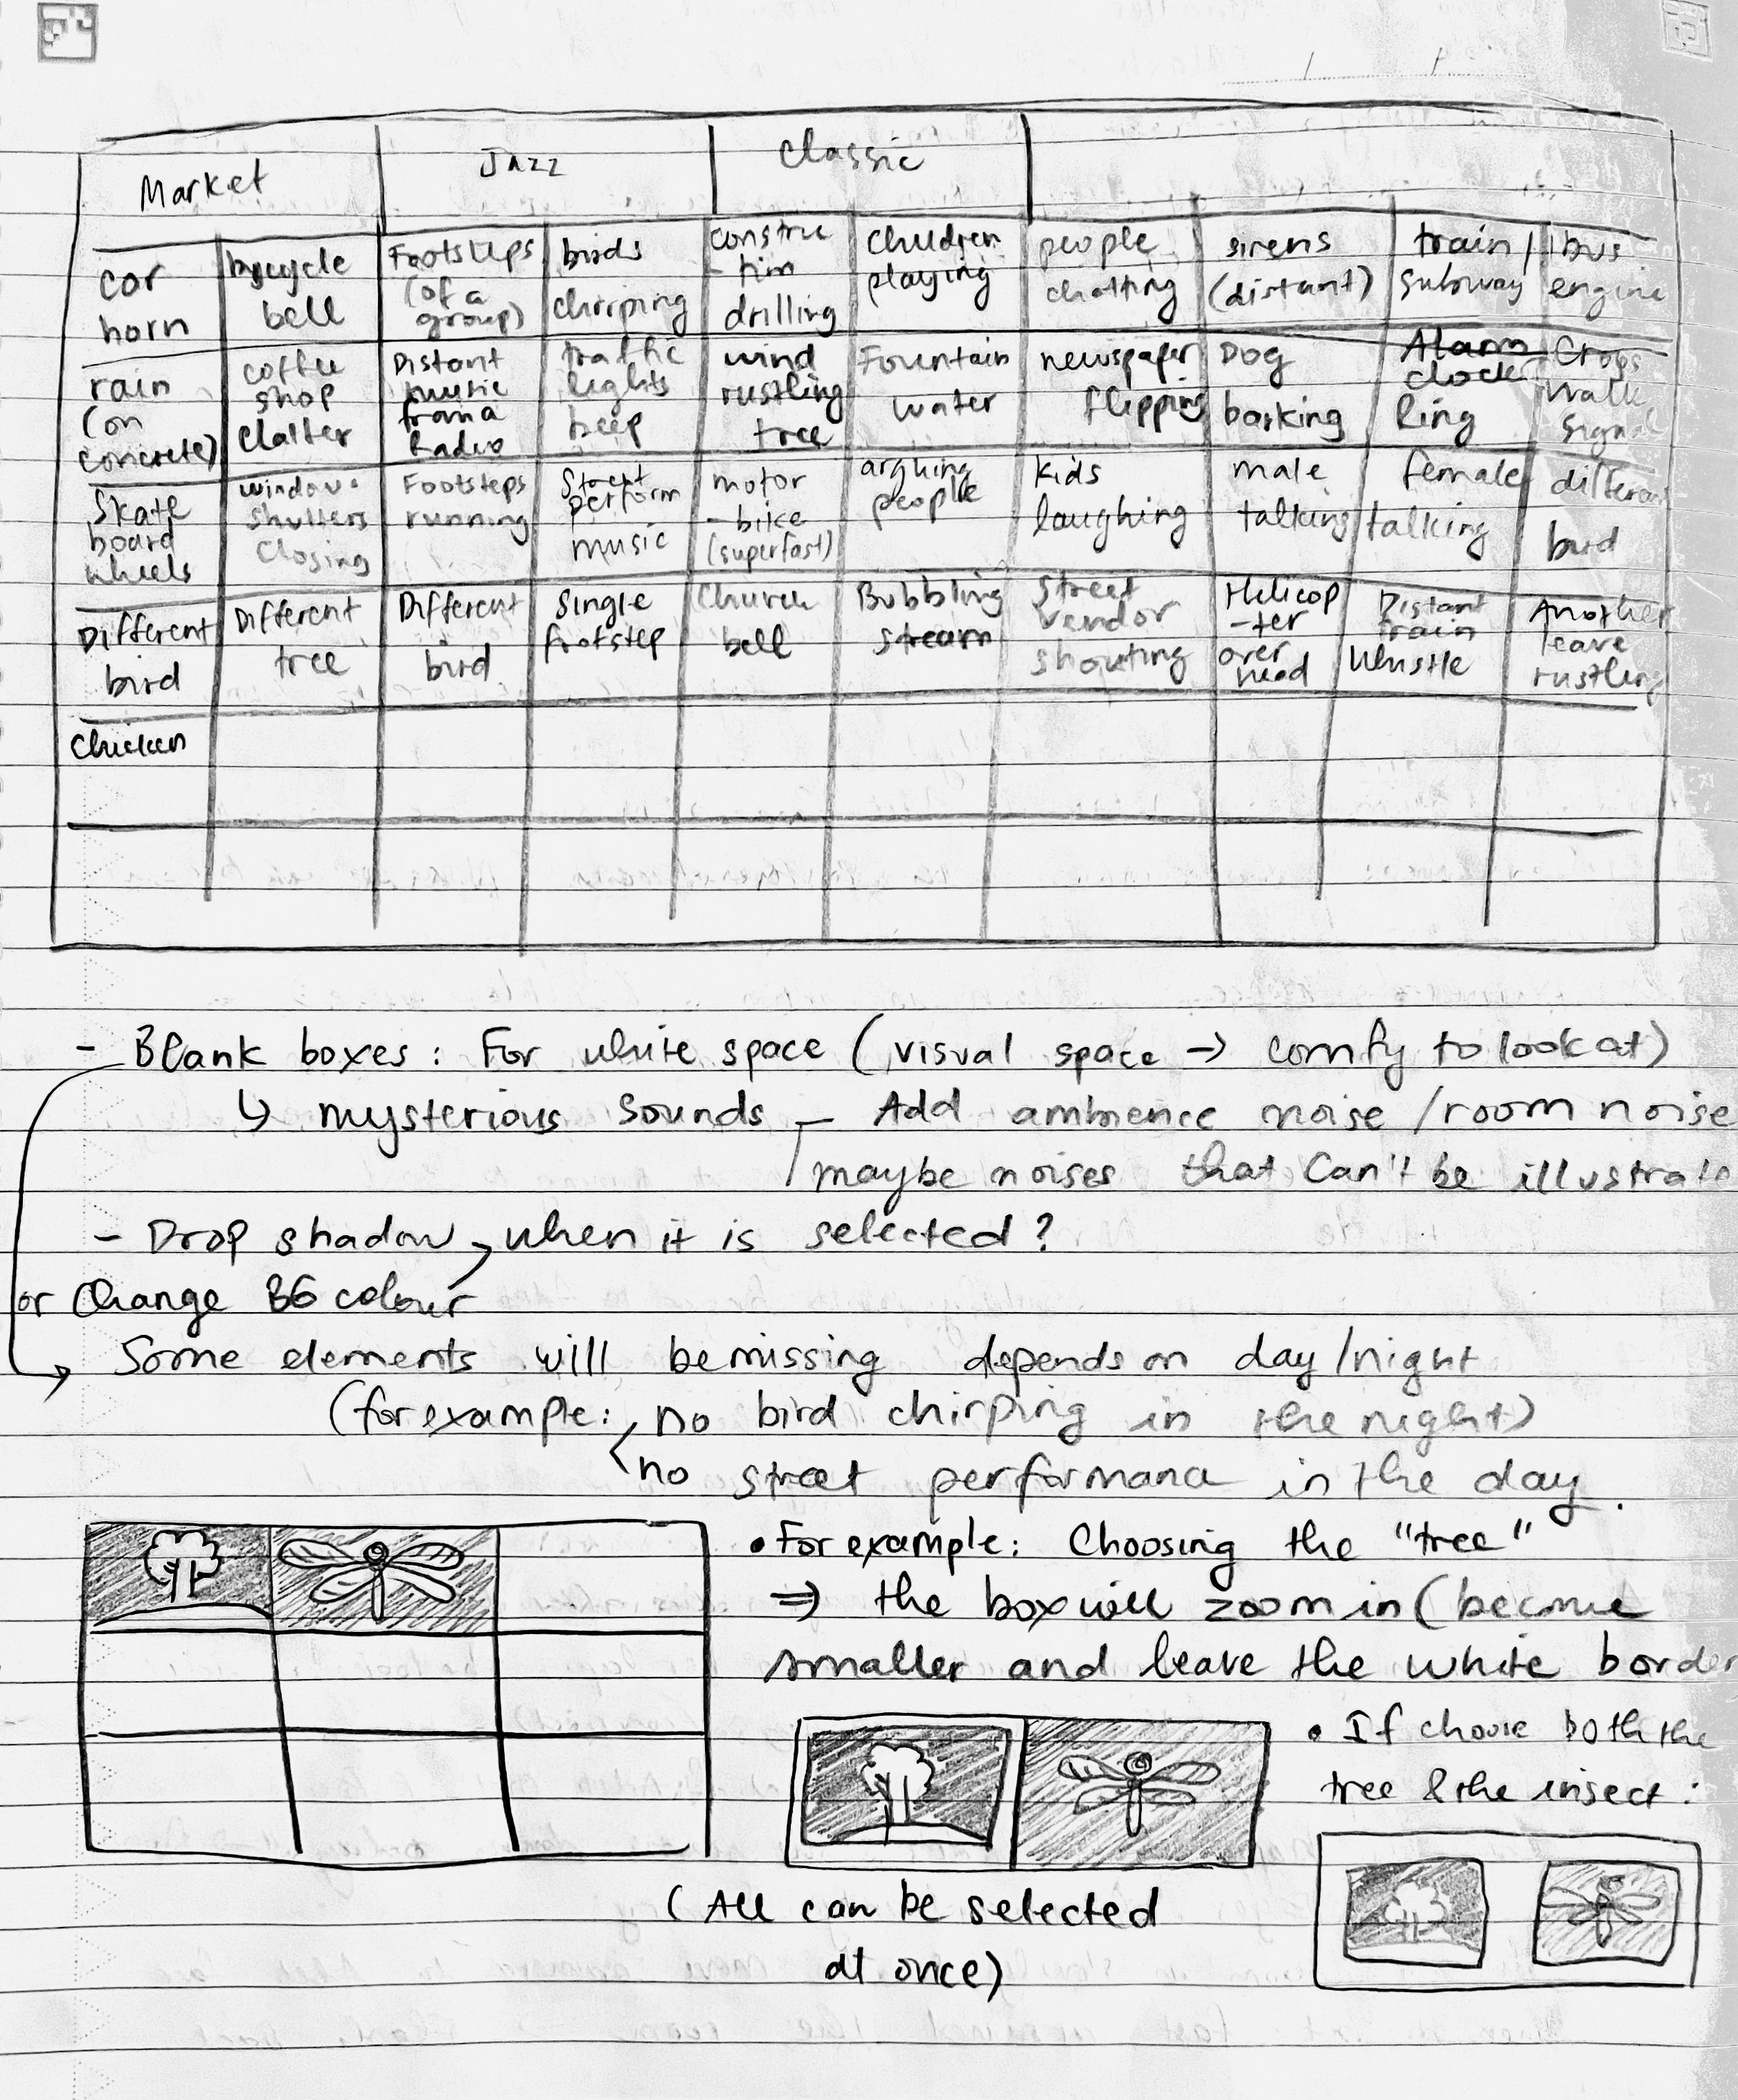 Market Jazz Classic
car horn
bycycle bell
Footsteps (of a group)
birds chirping
constru-tion drilling
children playing
people chatting
sirens (distant)
train/ subway
bus engine
rain (on concrete)
coffee shop clatter
Distant music from a Radio
traffic lights beep
wind rustling tree
Fountain water
newspaper flipping
Dog barking
Alarm clock Ring
Cross walk signal
Skate board wheels
window shutters closing
Footsteps running
Street perform music
motor-bike (superfast)
arghing people
kids laughing
male talking
female talking
different bird
Different bird
Different tree
Different bird
Single footstep
Church bell
Bubbling stream
Street vendor shouting
Helicop-ter over head
Distant train whistle
Another leave rustling
Chicken
- Blank boxes: For white space (visual space → comfy to look at)
↳ mysterious sounds — Add ambience noise /room noise
maybe noises that can't be illustrate
- Drop shadow, when it is selected?
or Change BG colour
Some elements will be missing depends on day/night
(for example: no bird chirping in the night)
no street performance in the day.
• For example: Choosing the "tree"
⇒ the box will zoom in (become
smaller and leave the white border
• If choose both the
tree & the insect:
(All can be selected
at once)